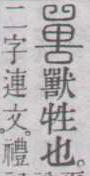 嘼獸牲也。
二字連文。禮